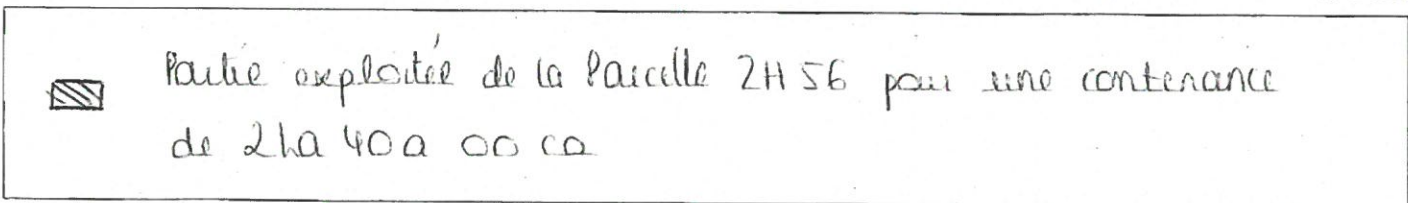 Partie exploitée de la Parcelle 2H 56 pour une contenance
de 2ha 40a 00 ca